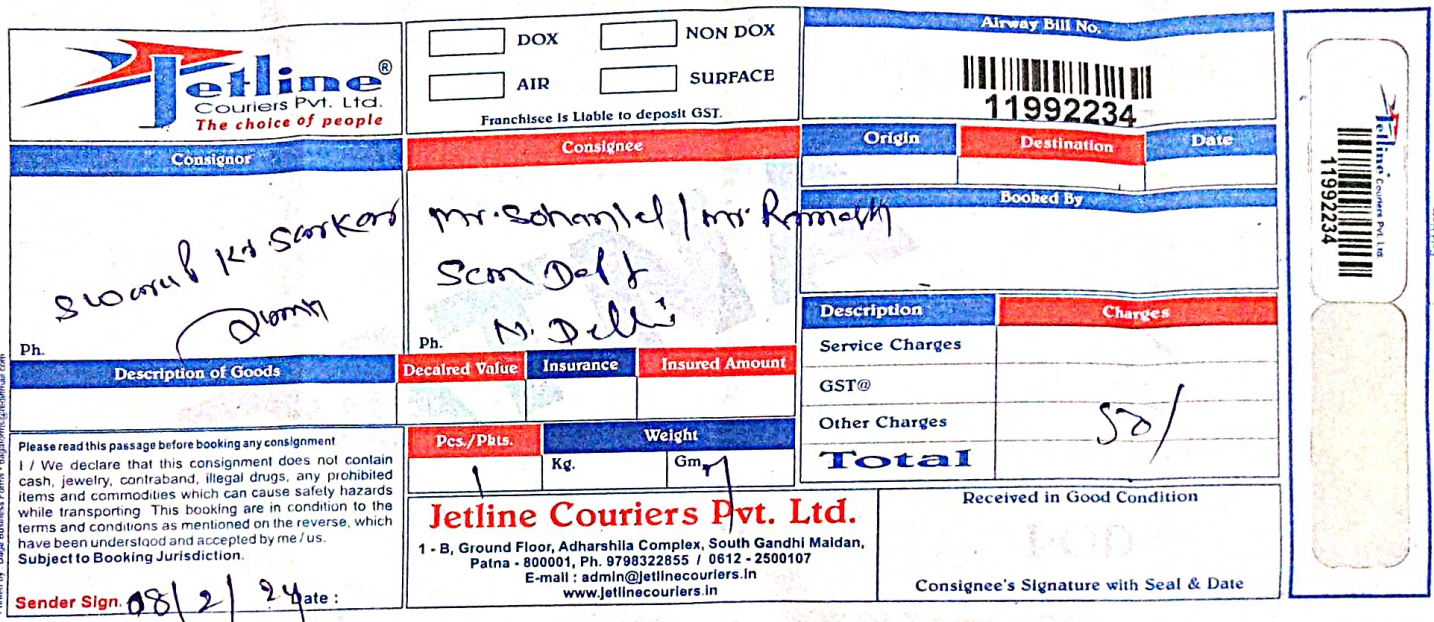 Jetline®
Couriers Pvt. Ltd.
The choice of people
DOX
NON DOX
AIR
SURFACE
Franchisee is Liable to deposit GST.
Airway Bill No.
11992234
Origin
Destination
Date
Consignor
Swarup Kr Sarkar
Ph.
Consignee
Mr. Sohanlal / Mr. Ramesh
Scm
N. Delhi
Ph.
Booked By
Description
Charges
Service Charges
GST@
Other Charges
50/
Total
Description of Goods
Decalred Value
Insurance
Insured Amount
Pcs./Pkts.
Weight
1
Kg.
Gm
Please read this passage before booking any consignment
I / We declare that this consignment does not contain
cash, jewelry, contraband, illegal drugs, any prohibited
items and commodities which can cause safety hazards
while transporting This booking are in condition to the
terms and conditions as mentioned on the reverse, which
have been understood and accepted by me / us.
Subject to Booking Jurisdiction.
Sender Sign. 08/2/24 Date :
Jetline Couriers Pvt. Ltd.
1 - B, Ground Floor, Adharshila Complex, South Gandhi Maidan,
Patna - 800001, Ph. 9798322855 / 0612 - 2500107
E-mail : admin@jetlinecouriers.in
www.jetlinecouriers.in
Received in Good Condition
POD
Consignee's Signature with Seal & Date
Jetline Couriers Pvt. Ltd.
11992234